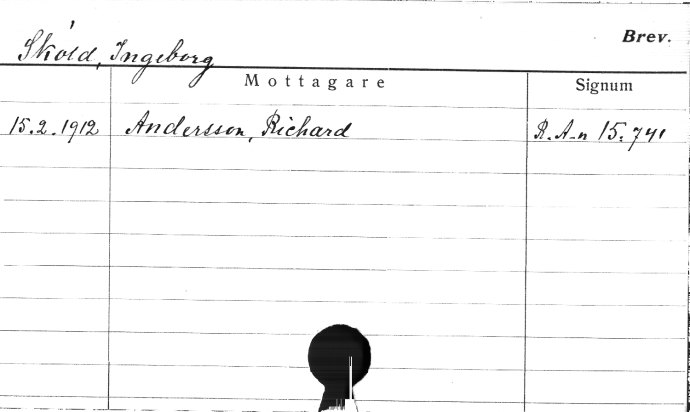 Brev.
Sköld, Ingeborg
Mottagare Signum
15.2.1912 Andersson, Richard R. A-n 15.741